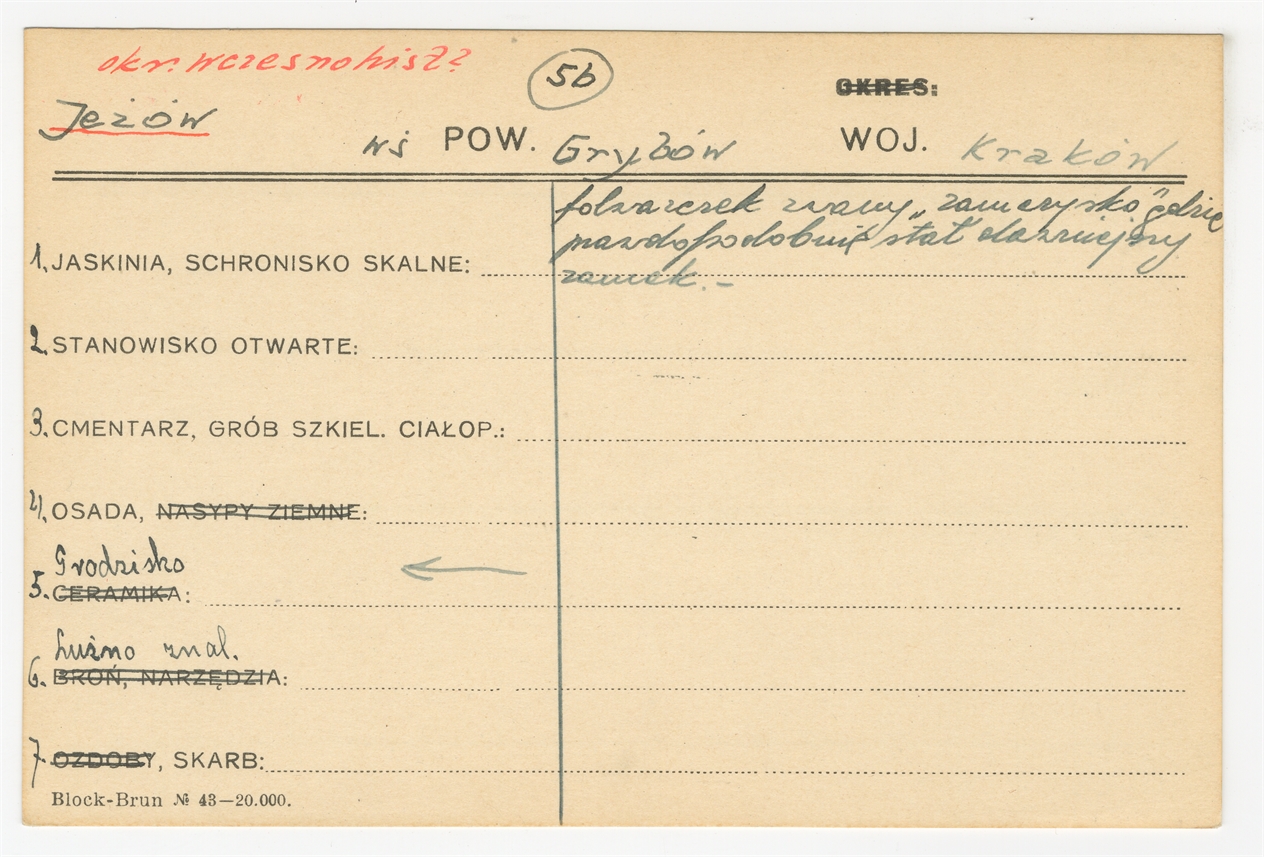 okr. wczesnohist?
5b
OKRES:
Jeżów
wś POW. Grybów WOJ. Kraków
folwarczek zwany „zamczysko" gdzie
prawdopodobnie stał dawniejszy
zamek.-
1. JASKINIA, SCHRONISKO SKALNE:
2. STANOWISKO OTWARTE:
3. CMENTARZ, GRÓB SZKIEL. CIAŁOP.:
4. OSADA, NASYPY ZIEMNE:
Grodzisko
5. CERAMIKA:
Luźno znal.
6. BROŃ, NARZĘDZIA:
7 OZDOBY, SKARB:
Block-Brun № 43—20.000.